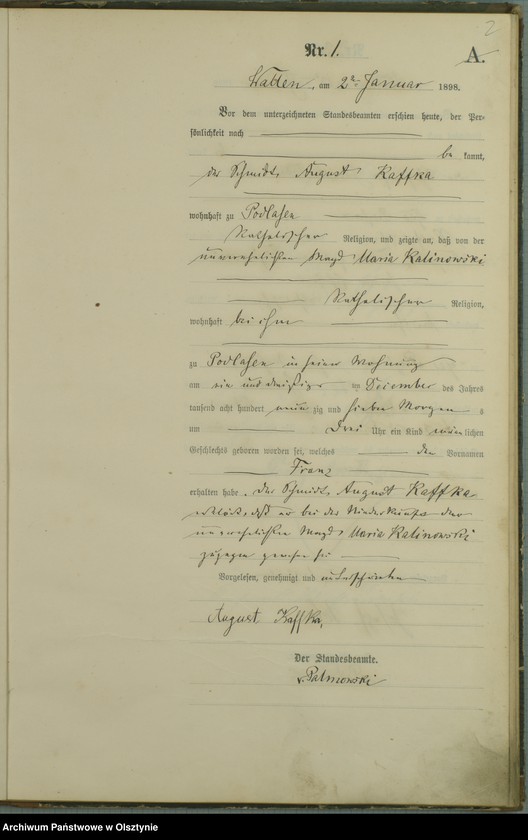 2
Nr. 1. A.
Watten, am 2n Januar 1898.
Vor dem unterzeichneten Standesbeamten erschien heute, der Per-
sönlichkeit nach
be kannt,
der Schmidt August Kaffka
wohnhaft zu Podlasen
Katholischer Religion, und zeigte an, daß von der
unverehelichten Magd Maria Kalinowski
Katholischer Religion,
wohnhaft bei ihm
zu Podlasen in seiner Wohnung
am ein und dreißigs December des Jahres
tausend acht hundert neun zig und sieben Morgen s
um Drei Uhr ein Kind männlichen
Geschlechts geboren worden sei, welches den Vornamen
Franz
erhalten habe. Der Schmidt August Kaffka
erklärt, daß er bei der Niederkunft der
unverehelichten Magd Maria Kalinowski
zugegen gewesen sei
Vorgelesen, genehmigt und unterschrieben
August Kaffka,
Der Standesbeamte.
v. Palmowski
Archiwum Państwowe w Olsztynie